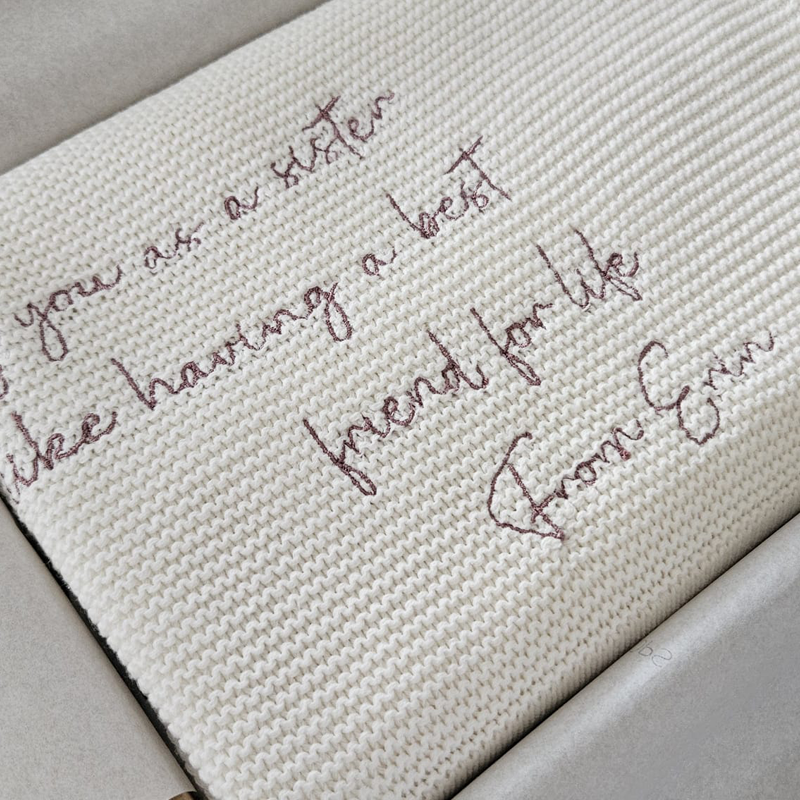 you as a sister
like having a best
friend for life
From Erin